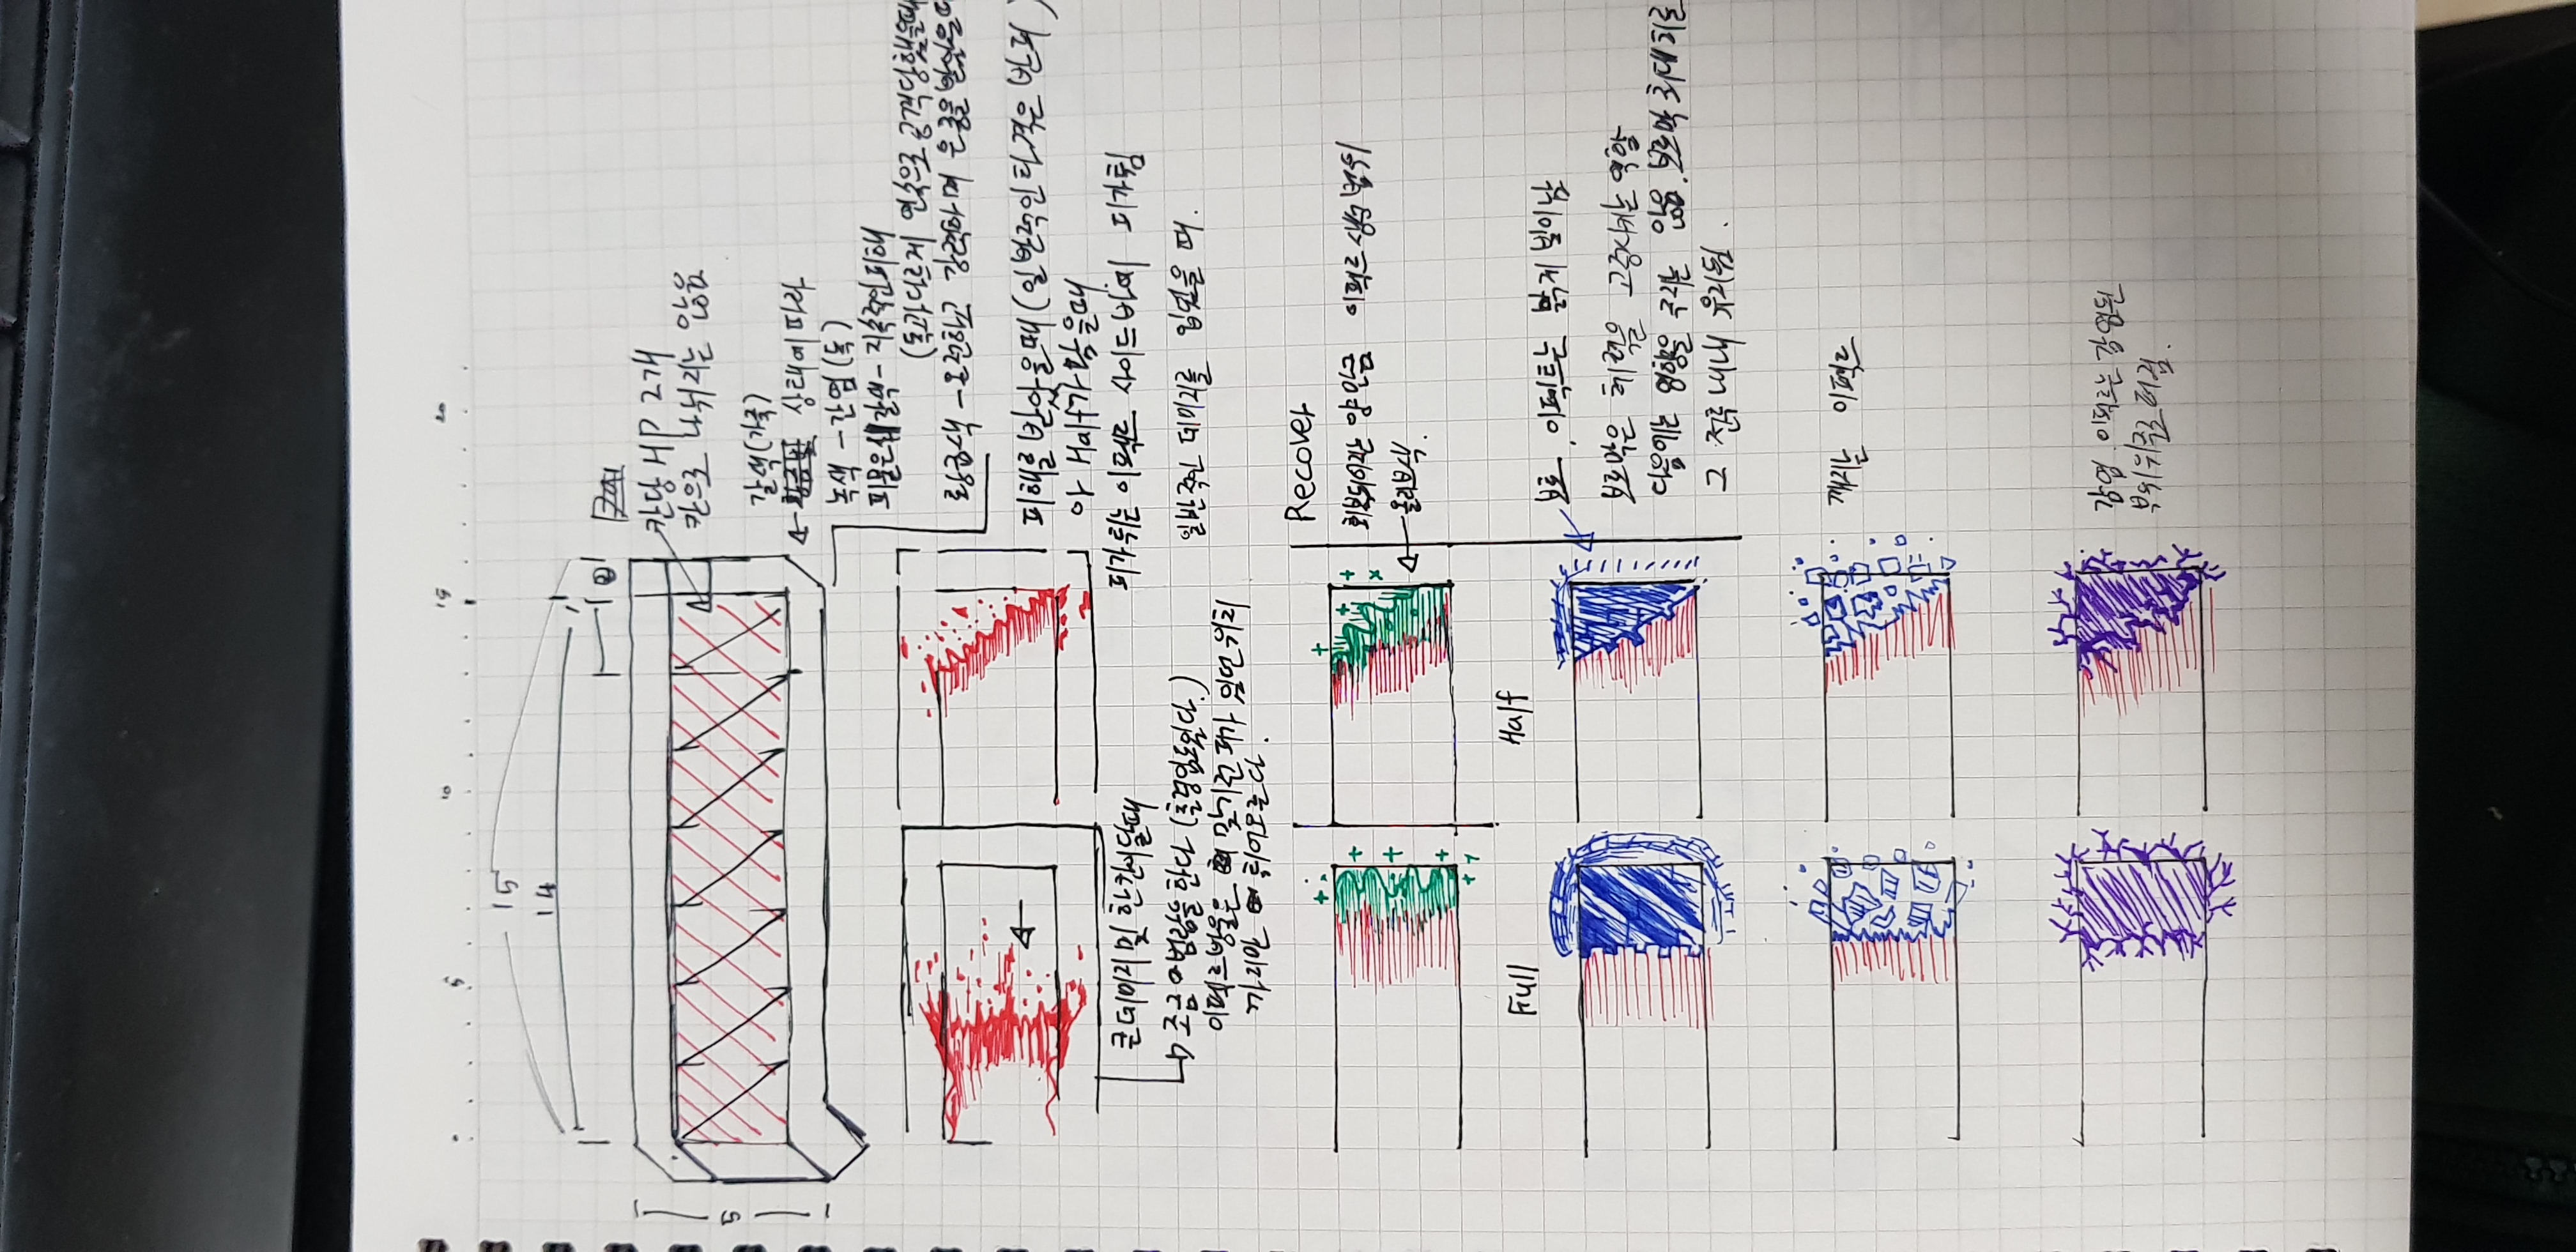 5 10 15 20
15
14
5
칸당 HP 2개
칸으로 나뉘지는 않음
갈색(가죽)
상태에 따라
녹색 - 감염(독)
피물은 갈색 - 지속적인 피해
(독과 다르게 연속으로 공격당했을때
황금색 - 온전하고 강력하며 은총을 받았을때
피해를 받았을때 (일반적인 타격은 반피)
아 Half가 닳을때.
피가 튀는 이펙트 사이드바에 피가 튐
일반적인 데미지를 입었을 때.
큰 데미지 및 한칸이 달때
조금 범람을 한다 (출렁임도 있다.)
이펙트 방울은 맞기전 피가 있던 위치
까지만 튀어오른다.
Recover
회복되어지는 양만큼 이펙트 생성 범위
올리브색.
Full
Half
보호. 이펙트는 밝게 빛이남
보호막은 체력을 고정시키는 역할
다음에는 영향을 주지는 않음. 보호막 최대치로
그 전투 내내 유지됨.
깨지는 이펙트
감염. 이펙트는 감염된
부위 위주로 터짐.